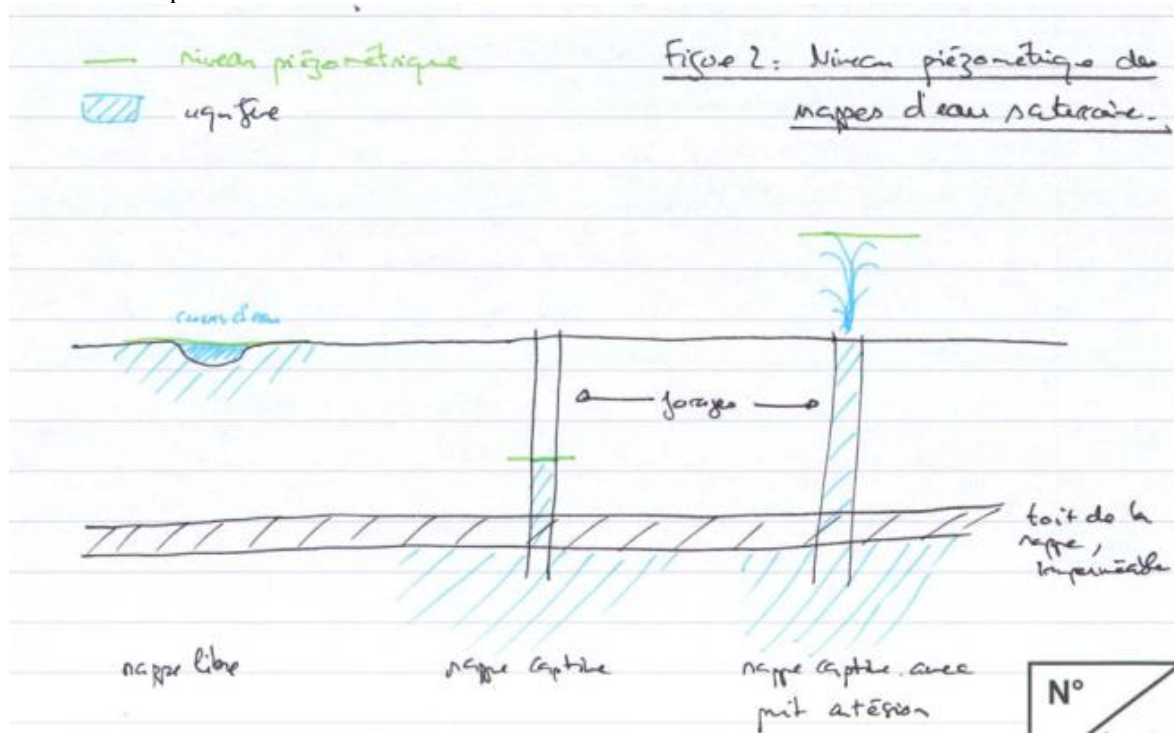 niveau piézométrique
aquifère
Figure 2: Niveau piézométrique des
nappes d'eau souterraine.
cours d'eau
forages
toit de la
nappe,
imperméable
nappe libre
nappe captive
nappe captive avec
puit artésien
N°